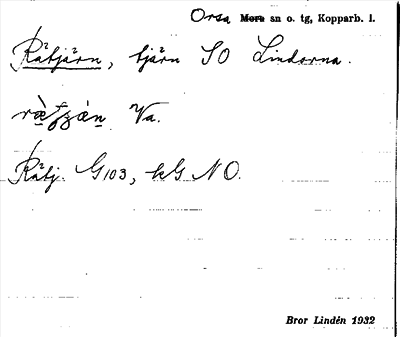 Orsa Mora sn o. tg, Kopparb. l.
Råtjärn, tjärn SO Lindorna.
Va.
Råtj. G103, kG NO.
Bror Lindén 1932